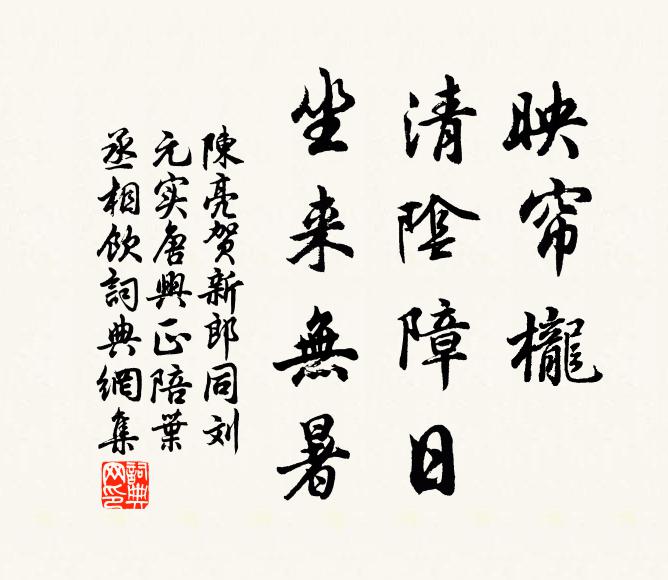 映帘櫳
清陰障日
坐来無暑
陳亮賀新郎同刘
元实唐興正陪葉
丞相飲詞典網集
詞典网印